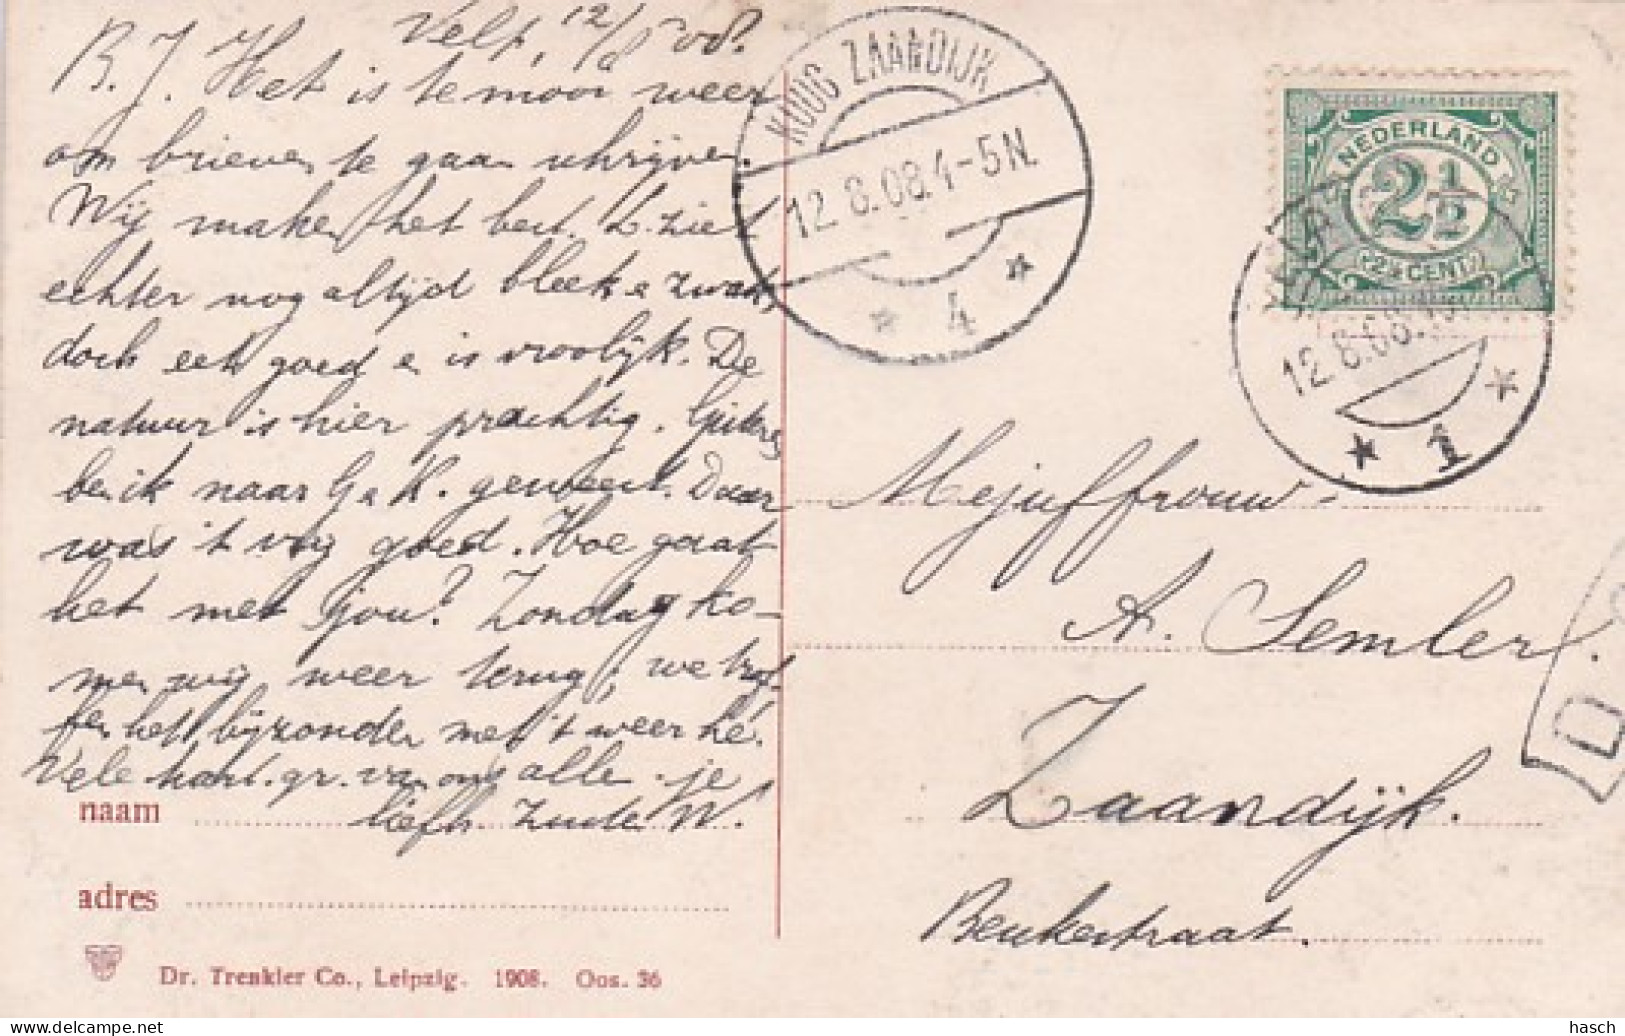 Velp, 12/8 '08.
B. J. Het is te mooi weer
om brieven te gaan schrijven.
Wij maken het best. L. ziet
echter nog altijd bleek en zwak,
doch eet goed en is vroolijk. De
natuur is hier prachtig. Gisteren
ben ik naar G en K. geweest. Daar
was 't vrij goed. Hoe gaat
het met jou? Zondag ko-
men wij weer terug, we tref-
fen het bijzonder met 't weer hé.
Vele hart. gr. van ons allen. je
liefh. Zuster W.
naam
adres
Dr. Trenkler Co., Leipzig. 1908. Oos. 36
KOOG ZAANDIJK
12.8.08.4-5N.
* 4 *
NEDERLAND
2 1/2
2½ CENT
VELP
12.8.08.
* 1 *
Mejuffrouw
A. Semler.
Zaandijk.
Beukestraat.
hasch